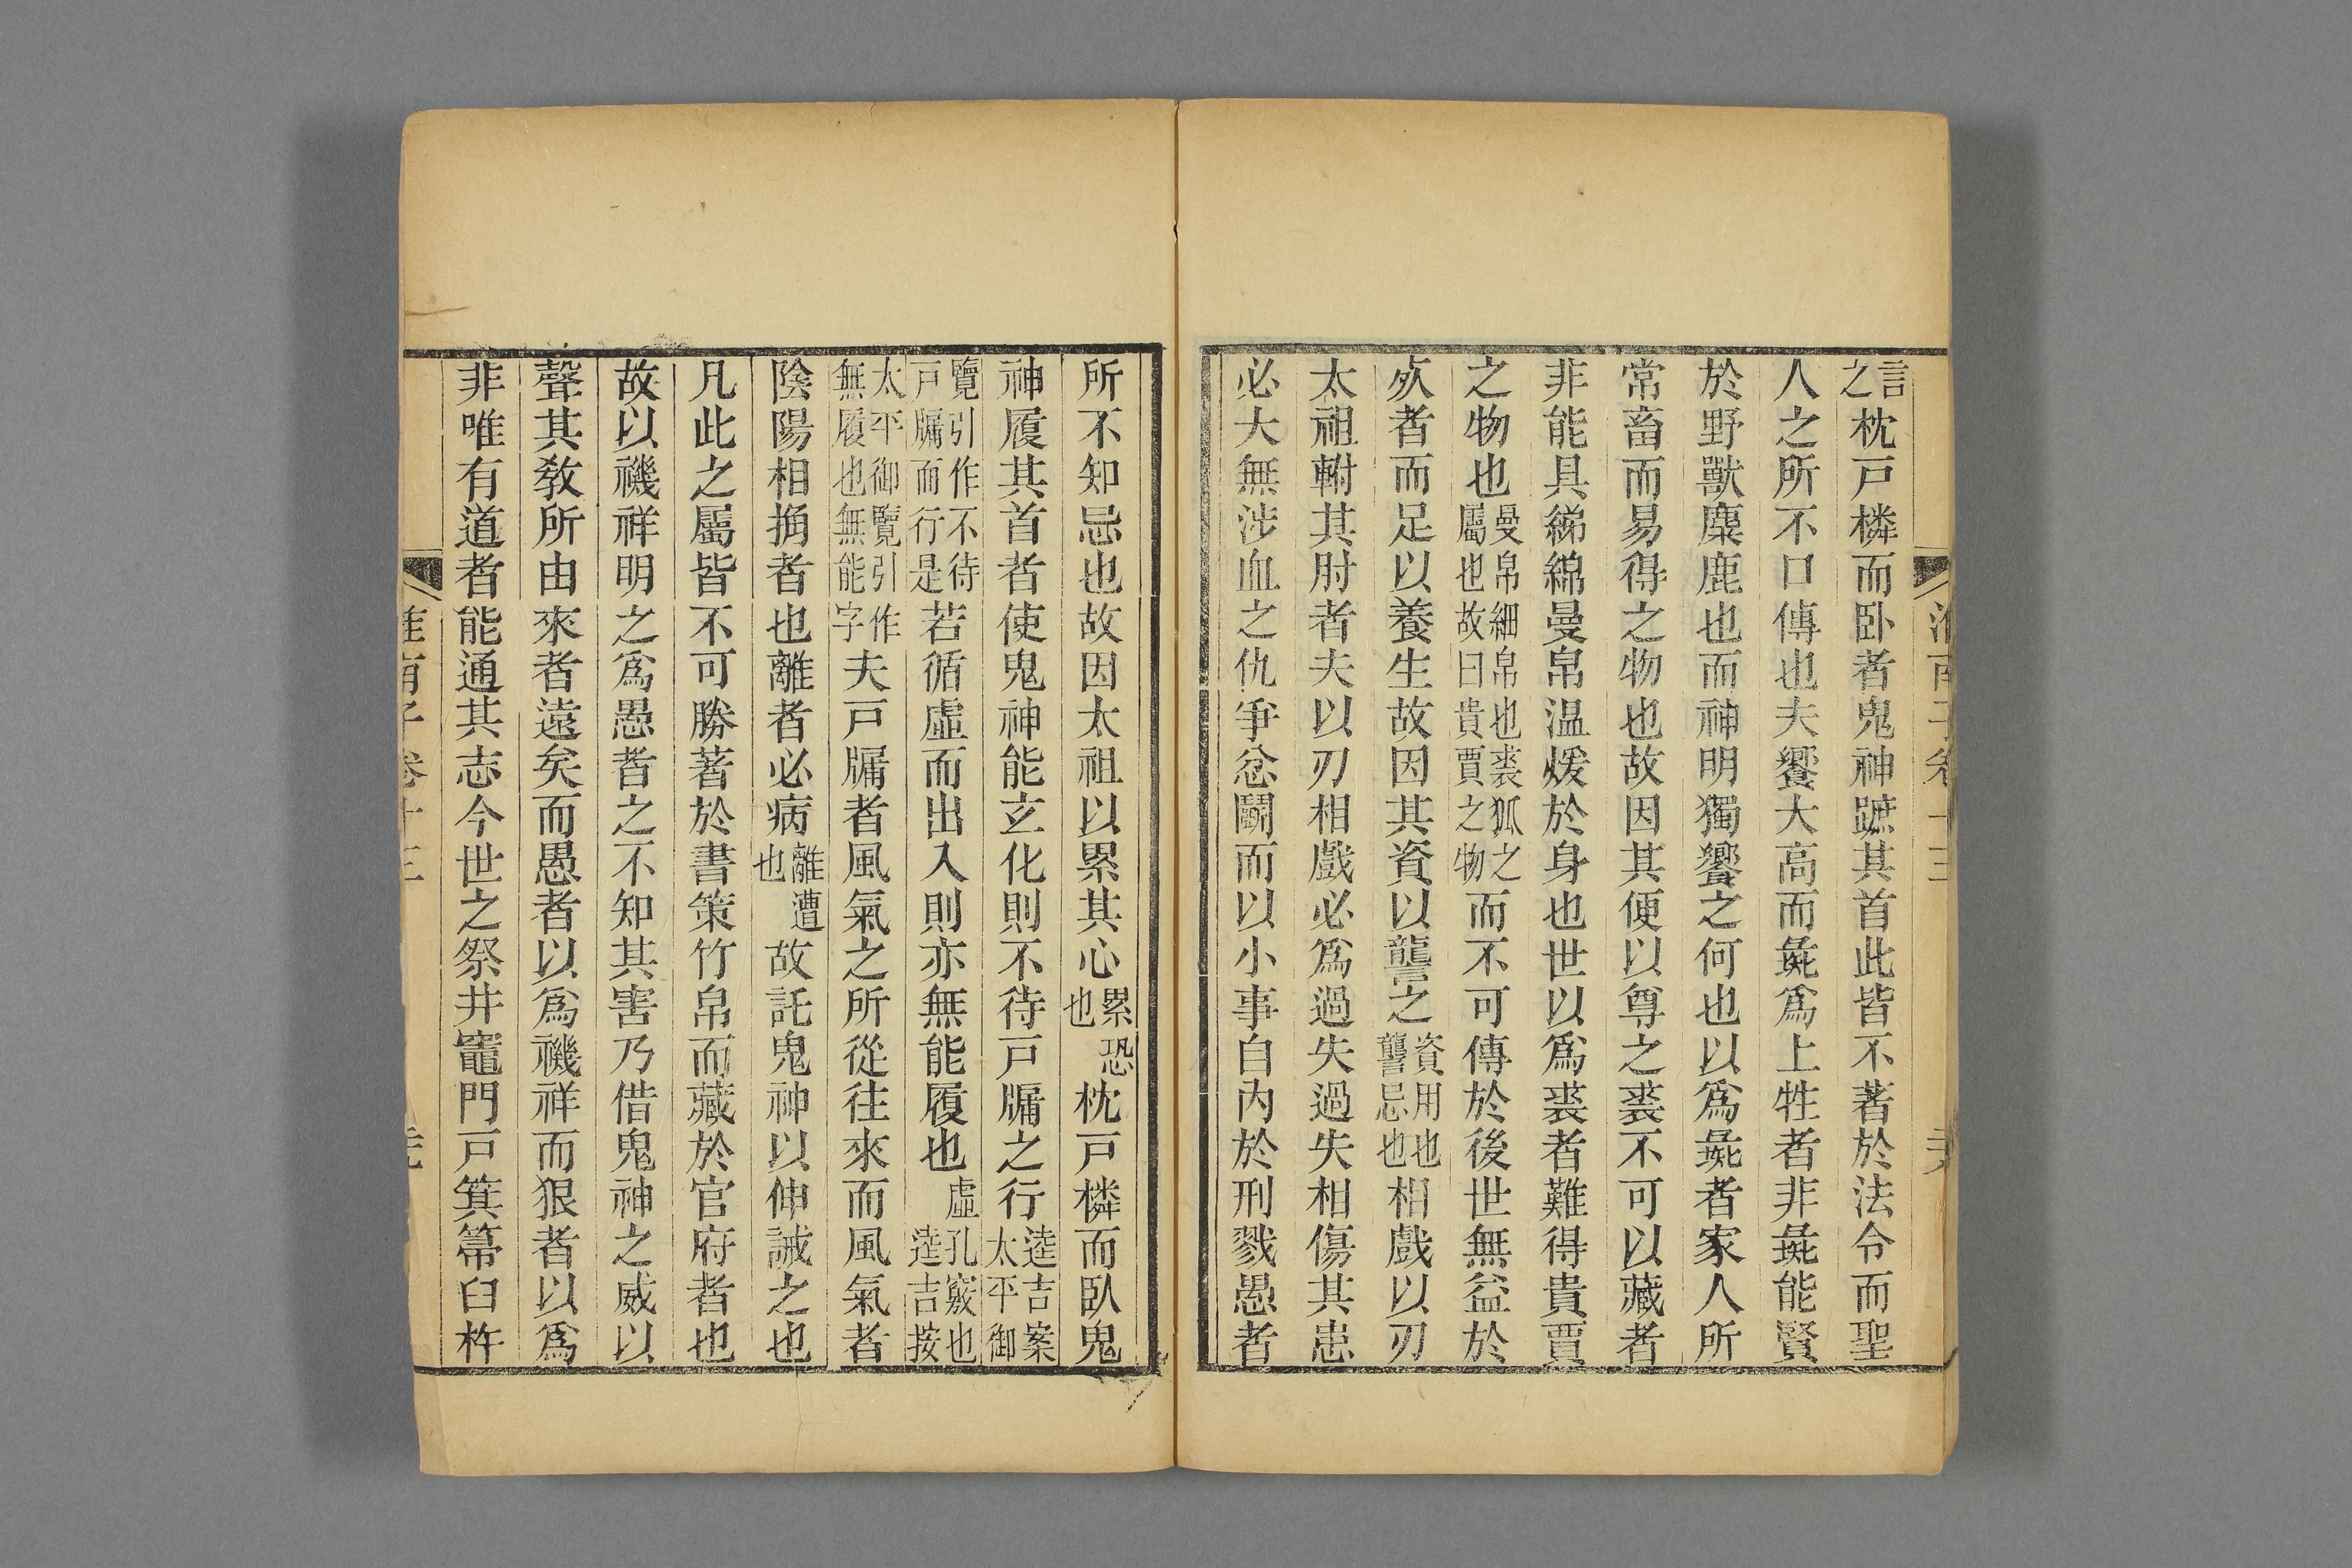 言之枕戸橉而卧者鬼神蹠其首此皆不著於法令而聖
人之所不口傳也夫饗大高而彘爲上牲者非彘能賢
於野獸麋鹿也而神明獨饗之何也以爲彘者家人所
常畜而易得之物也故因其便以尊之裘不可以藏者
非能具綈綿曼帛温煖於身也世以爲裘者難得貴賈
之物也曼帛細帛也裘狐之屬也故曰貴賈之物而不可傳於後世無益於
㱙者而足以養生故因其資以讋之資用也讋忌也相戲以刃
太祖軵其肘者夫以刃相戲必爲過失過失相傷其患
必大無涉血之仇爭忿鬭而以小事自內於刑戮愚者
所不知忌也故因太祖以累其心累恐也枕戸橉而臥鬼
神履其首者使鬼神能玄化則不待戸牖之行逵吉案太平御
覽引作不待戸牖而行是若循虛而出入則亦無能履也虛孔竅也逵吉按
太平御覽引作無履也無能字夫戸牖者風氣之所從往來而風氣者
陰陽相捔者也離者必病離遭也故託鬼神以伸誡之也
凡此之屬皆不可勝著於書策竹帛而藏於官府者也
故以禨祥明之爲愚者之不知其害乃借鬼神之威以
聲其敎所由來者遠矣而愚者以爲禨祥而狠者以爲
非唯有道者能通其志今世之祭井竈門戸箕箒臼杵
淮南子卷十三